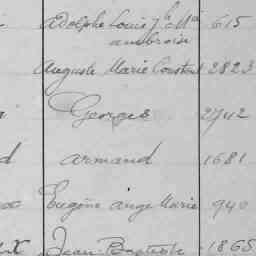 Adolphe Louis Jh Ma 615
ambroise
Auguste Marie Constant 2823
Georges 2742
d armand 1681
Eugène ange Marie 940
x Jean Baptiste 1865